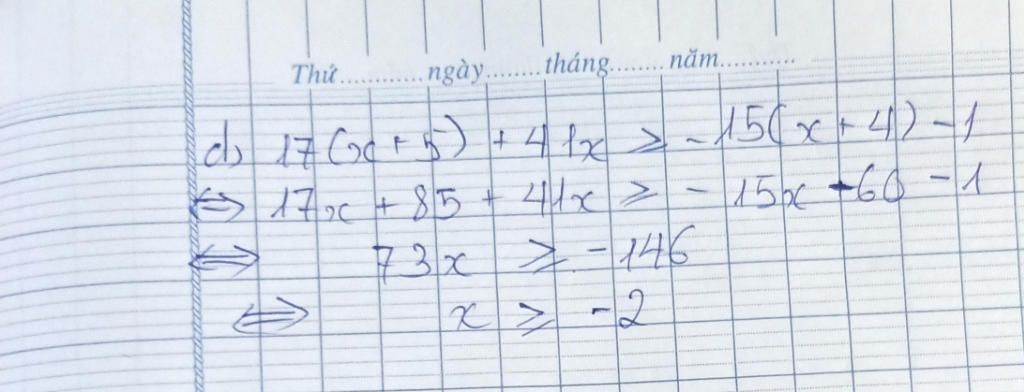 Thứ............ngày........tháng........năm...........
d) 17(x+5) + 41x ≥ -15(x+4) -1
⇔ 17x + 85 + 41x ≥ - 15x - 60 - 1
⇔ 73x ≥ -146
⇔ x ≥ -2